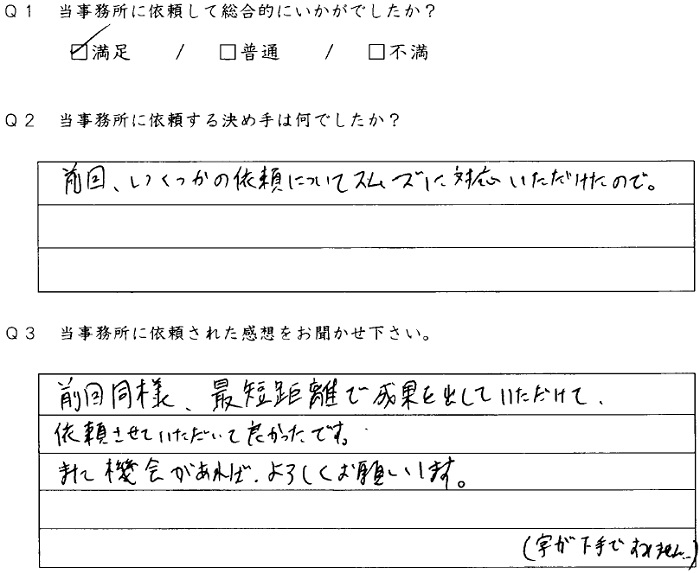 Q1 当事務所に依頼して総合的にいかがでしたか?
☑満足 / □普通 / □不満
Q2 当事務所に依頼する決め手は何でしたか?
前回、いくつかの依頼についてスムーズに対応いただけたので。
Q3 当事務所に依頼された感想をお聞かせ下さい。
前回同様、最短距離で成果を出していただけて、
依頼させていただいて良かったです。
また機会があれば、よろしくお願いします。
(字が下手ですみません…)